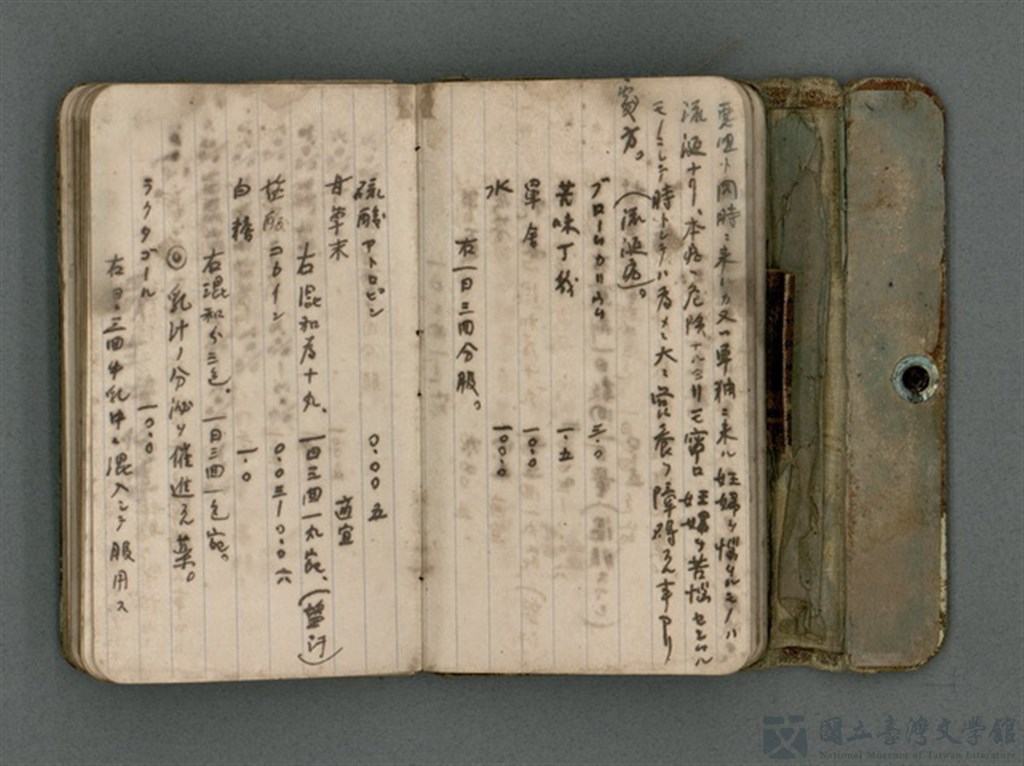 悪阻ト同時ニ来ルカ又ハ単独ニ来ル妊婦ヲ悩マスモノハ
流涎ナリ、本病ハ危険ナルヨリモ寧ロ妊婦ヲ苦悩セシムル
モノニシテ時トシテハ為メニ大ニ営養ヲ障碍スル事アリ
処方。(流涎病)。
ブロームカリウム 三.〇
苦味丁幾 一.五
単舎 一〇.〇
水 一〇〇.〇
右一日三回分服。
硫酸アトロピン 〇.〇〇五
甘草末 適宜
右混和為十丸、一日三回一丸宛、(盗汗)
塩酸コカイン 〇.〇三-〇.〇六
白糖 一.〇
右混和分三包、一日三回一包宛。
◎乳汁ノ分泌ヲ催進スル薬。
ラクタゴール 一〇.〇
右一日三四牛乳中ニ混入シテ服用ス
國立臺灣文學館
National Museum of Taiwan Literature